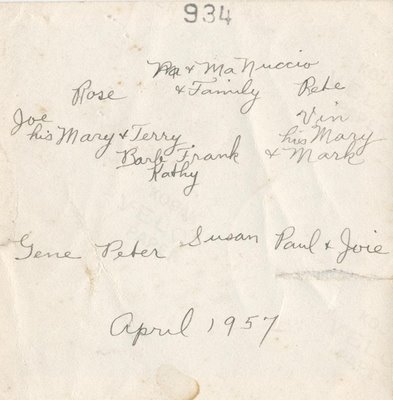 934
Pa & Ma Nuccio
Rose & Family Pete
Joe Vin
his Mary & Terry his Mary
Barb Frank & Mark
Kathy
Gene Peter Susan Paul & Joie
April 1957